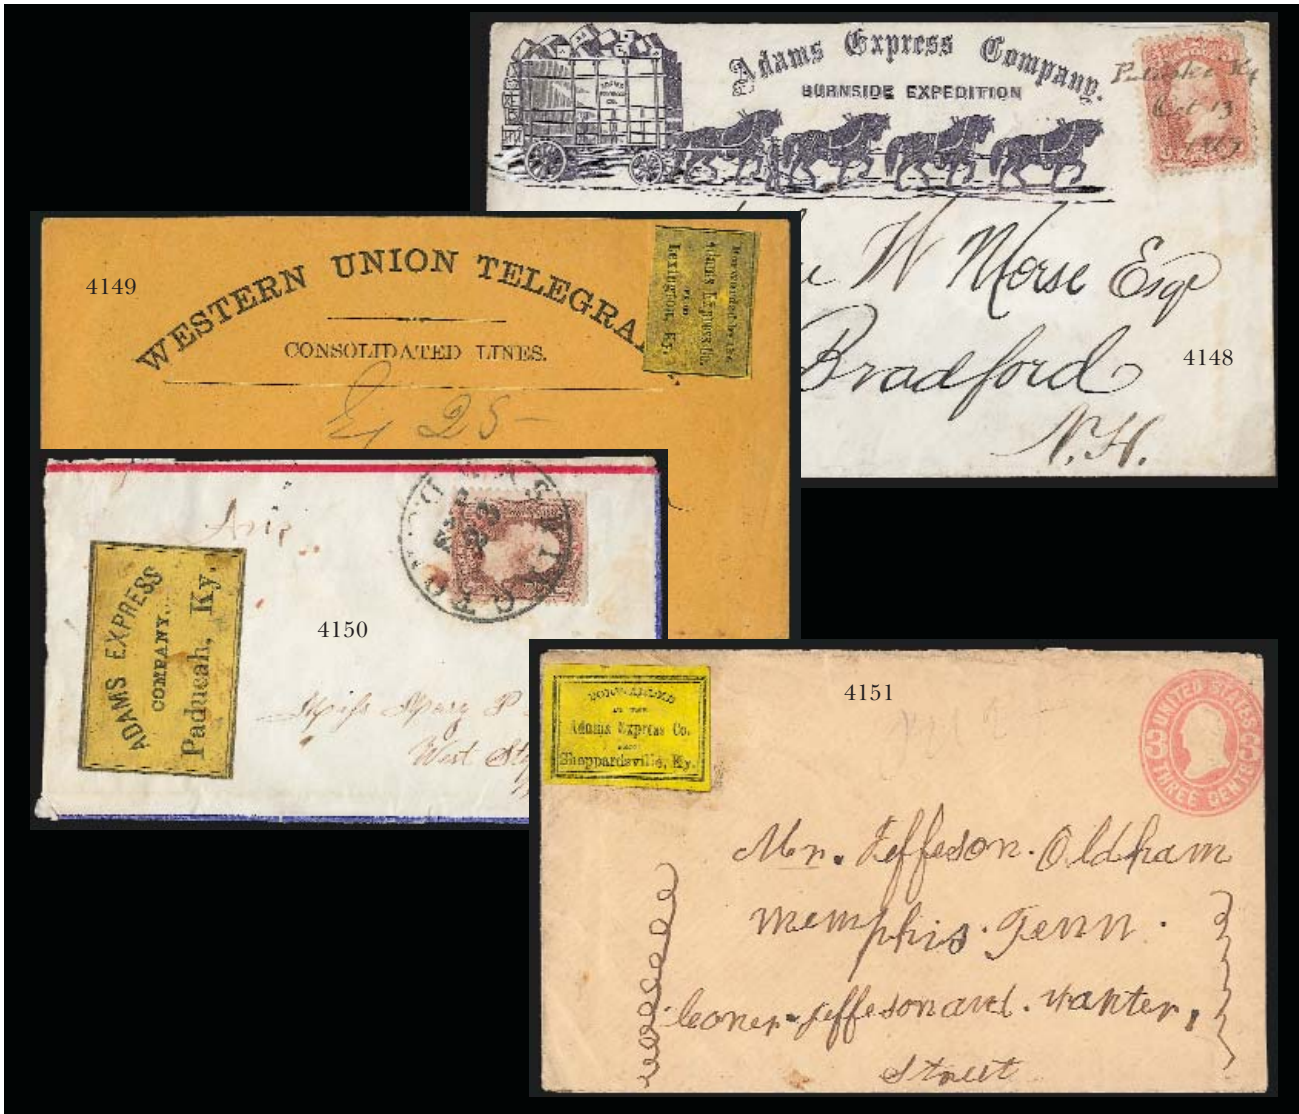 Adams Express Company.
BURNSIDE EXPEDITION
Oct 13
W Morse Esqr
Bradford
N.H.
4148
4149
WESTERN UNION TELEGRA
CONSOLIDATED LINES.
25-
Forwarded by the
Adams Express Co.
From
Lexington, Ky.
4150
ADAMS EXPRESS
COMPANY,
Paducah, Ky.
Miss Mary P
West
4151
FORWARDED
BY THE
Adams Express Co.
FROM
Sheppardsville, Ky.
UNITED STATES
3 3
THREE CENTS
Mr. Jeffeson. Oldham
memphis. Tenn.
Jeffeson and.
Street